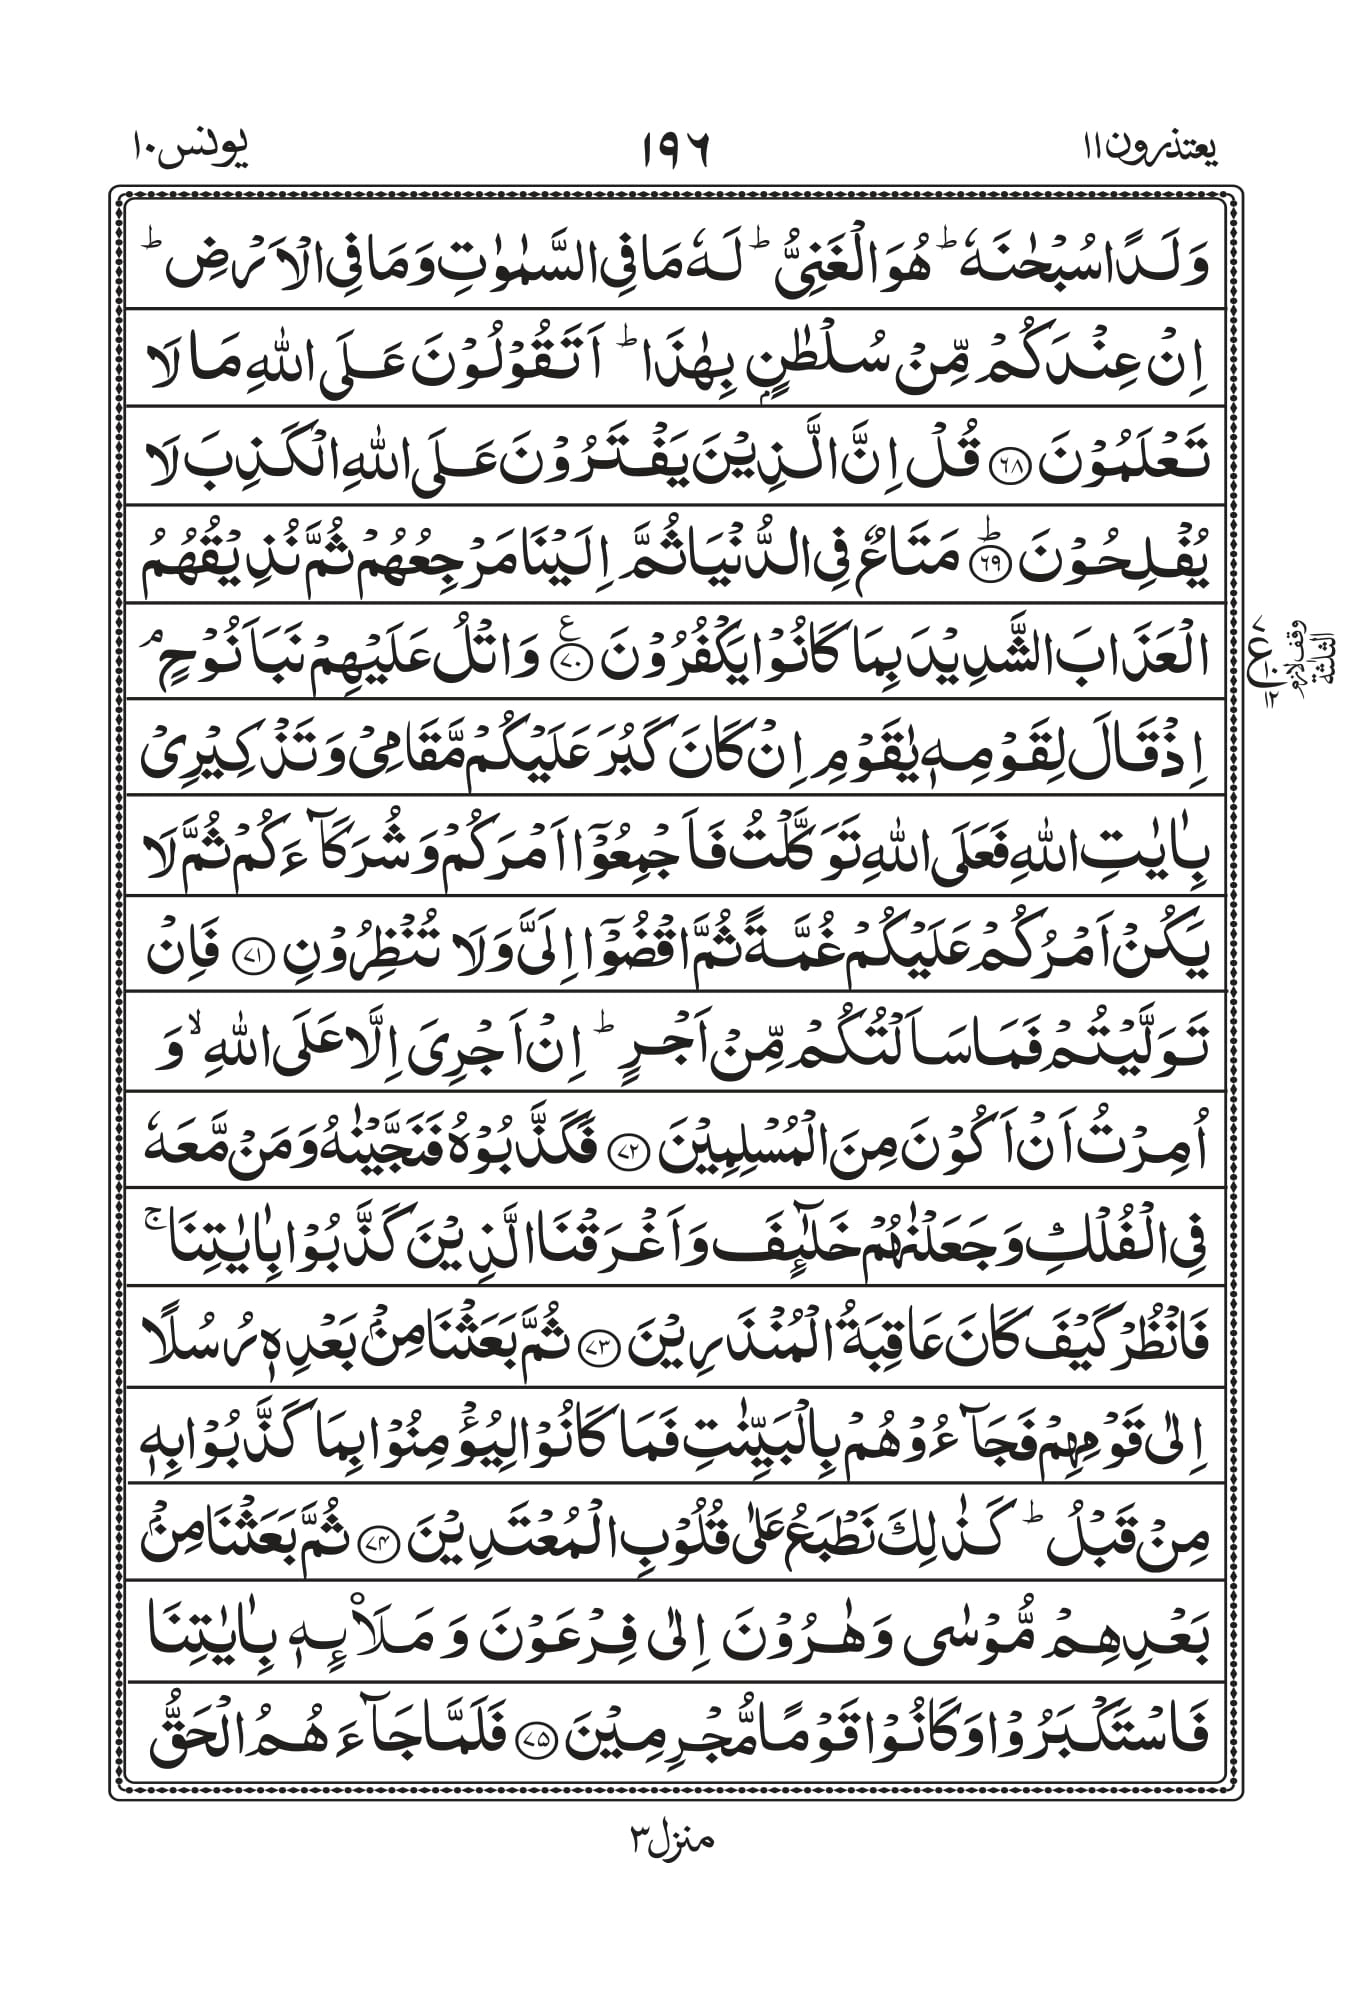 یعتذرون۱۱
۱۹۶
یونس۱۰
وَلَدًا سُبۡحٰنَهٗ ؕ هُوَ الۡغَنِىُّ ؕ لَهٗ مَا فِى السَّمٰوٰتِ وَمَا فِى الۡاَرۡضِ ؕ
اِنۡ عِنۡدَكُمۡ مِّنۡ سُلۡطٰنٍۭ بِهٰذَا ؕ اَتَقُوۡلُوۡنَ عَلَى اللّٰهِ مَا لَا
تَعۡلَمُوۡنَ ﴿۶۸﴾ قُلۡ اِنَّ الَّذِيۡنَ يَفۡتَرُوۡنَ عَلَى اللّٰهِ الۡكَذِبَ لَا
يُفۡلِحُوۡنَ ؕ ﴿۶۹﴾ مَتَاعٌ فِى الدُّنۡيَا ثُمَّ اِلَيۡنَا مَرۡجِعُهُمۡ ثُمَّ نُذِيۡقُهُمُ
الۡعَذَابَ الشَّدِيۡدَ بِمَا كَانُوۡا يَكۡفُرُوۡنَ ﴿۷۰﴾ ع وَاتۡلُ عَلَيۡهِمۡ نَبَاَ نُوۡحٍ ۘ
اِذۡ قَالَ لِقَوۡمِهٖ يٰقَوۡمِ اِنۡ كَانَ كَبُرَ عَلَيۡكُمۡ مَّقَامِىۡ وَتَذۡكِيۡرِىۡ
بِاٰيٰتِ اللّٰهِ فَعَلَى اللّٰهِ تَوَكَّلۡتُ فَاَجۡمِعُوۡۤا اَمۡرَكُمۡ وَشُرَكَآءَكُمۡ ثُمَّ لَا
يَكُنۡ اَمۡرُكُمۡ عَلَيۡكُمۡ غُمَّةً ثُمَّ اقۡضُوۡۤا اِلَىَّ وَلَا تُنۡظِرُوۡنِ ﴿۷۱﴾ فَاِنۡ
تَوَلَّيۡتُمۡ فَمَا سَاَلۡتُكُمۡ مِّنۡ اَجۡرٍ ؕ اِنۡ اَجۡرِىَ اِلَّا عَلَى اللّٰهِ ۙ وَ
اُمِرۡتُ اَنۡ اَكُوۡنَ مِنَ الۡمُسۡلِمِيۡنَ ﴿۷۲﴾ فَكَذَّبُوۡهُ فَنَجَّيۡنٰهُ وَمَنۡ مَّعَهٗ
فِى الۡفُلۡكِ وَجَعَلۡنٰهُمۡ خَلٰٓٮِٕفَ وَاَغۡرَقۡنَا الَّذِيۡنَ كَذَّبُوۡا بِاٰيٰتِنَا ۚ
فَانْظُرۡ كَيۡفَ كَانَ عَاقِبَةُ الۡمُنۡذَرِيۡنَ ﴿۷۳﴾ ثُمَّ بَعَثۡنَا مِنۡۢ بَعۡدِهٖ رُسُلًا
اِلٰى قَوۡمِهِمۡ فَجَآءُوۡهُمۡ بِالۡبَيِّنٰتِ فَمَا كَانُوۡا لِيُؤۡمِنُوۡا بِمَا كَذَّبُوۡا بِهٖ
مِنۡ قَبۡلُ ؕ كَذٰلِكَ نَطۡبَعُ عَلٰى قُلُوۡبِ الۡمُعۡتَدِيۡنَ ﴿۷۴﴾ ثُمَّ بَعَثۡنَا مِنۡۢ
بَعۡدِهِمۡ مُّوۡسٰى وَهٰرُوۡنَ اِلٰى فِرۡعَوۡنَ وَمَلَا۟ٮِٕهٖ بِاٰيٰتِنَا
فَاسۡتَكۡبَرُوۡا وَكَانُوۡا قَوۡمًا مُّجۡرِمِيۡنَ ﴿۷۵﴾ فَلَمَّا جَآءَهُمُ الۡحَقُّ
۷
ع
۱۰
۱۲
وقف لازم
الثلٰثة
منزل۳